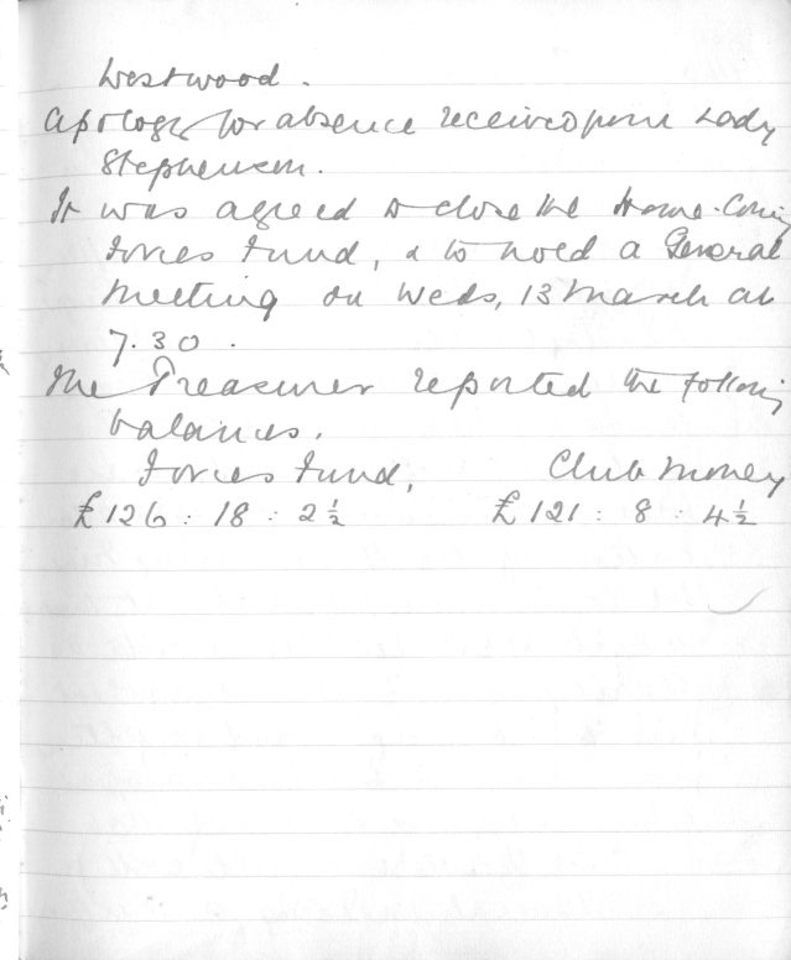 Westwood.
Apology for absence received from Lady
Stephenson.
It was agreed to close the Home-Coming
Forces Fund, & to hold a General
Meeting on Weds, 13 March at
7.30.
The Treasurer reported the following
balances.
Forces Fund, Club Money
£126 : 18 : 2½ £121 : 8 : 4½